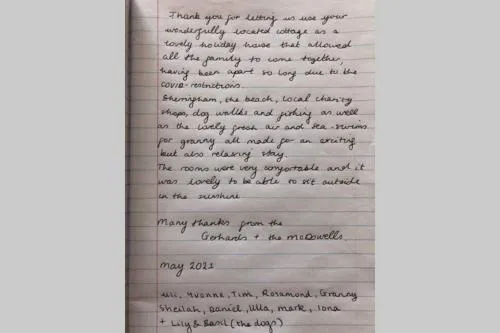 Thank you for letting us use your
wonderfully located cottage as a
lovely holiday house that allowed
all the family to come together,
having been apart so long due to the
covid-restrictions.
Sherringham, the beach, local charity
shops, dog walks and fishing as well
as the lovely fresh air and sea-swims
for granny all made for an exciting
but also relaxing stay.
The rooms were very comfortable and it
was lovely to be able to sit outside
in the sunshine
Many thanks from the
Gerhards + the McDowells.
May 2021
Uli, Yvonne, Tim, Rosamond, Granny
Sheilah, Daniel, Ulla, Mark, Iona
+ Lily & Basil (the dogs)